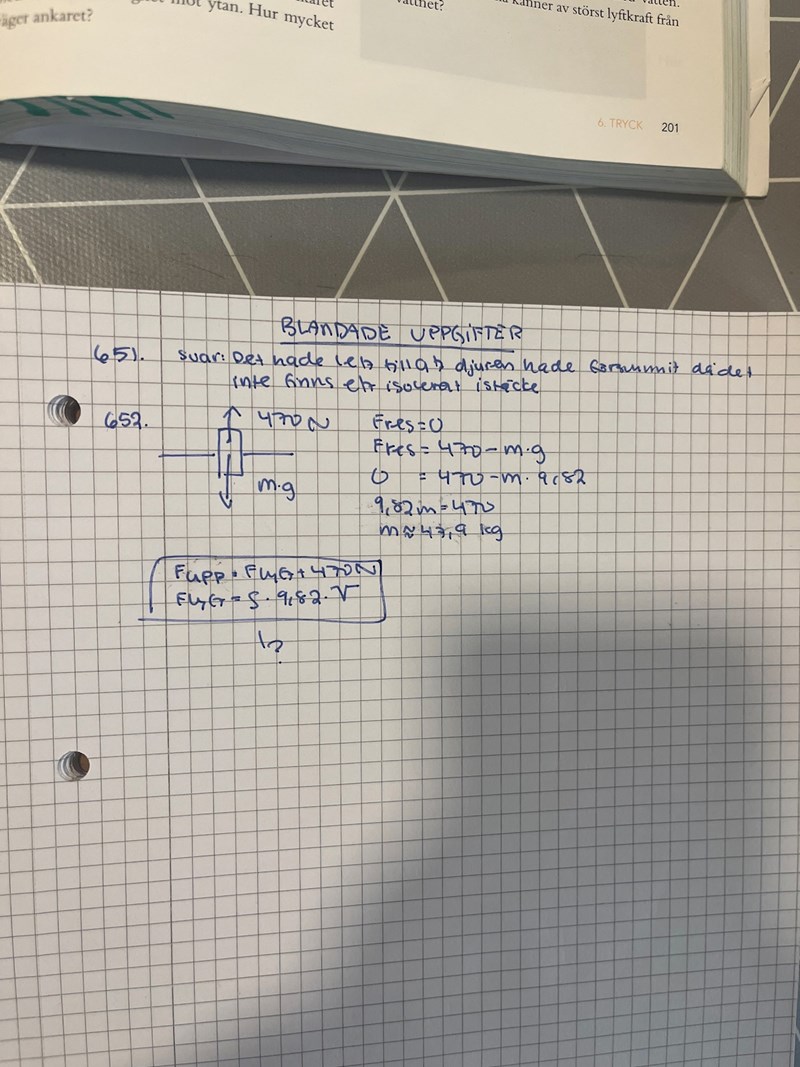 mot ytan. Hur mycket
äger ankaret?
vattnet?
känner av störst lyftkraft från
6. TRYCK 201
BLANDADE UPPGIFTER
651. svar: Det hade lett till att djuren hade försvunnit då det
inte finns ett isolerat istäcke
652.
470 N
m·g
Fres=0
Fres = 470 - m·g
0 = 470 - m· 9,82
9,82m = 470
m ≈ 47,9 kg
Fupp = FLYG + 470N
FLYG = ρ · 9,82 · V